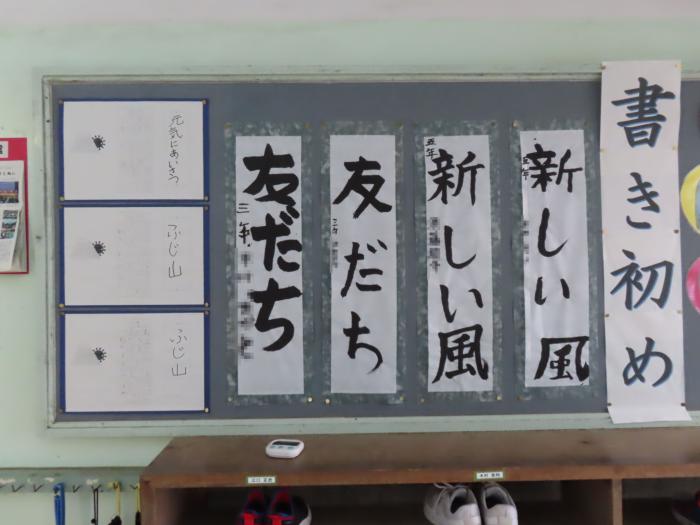 書き初め
新しい風
五年
新しい風
五年
友だち
三年
友だち
三年
元気にあいさつ
ふじ山
ふじ山